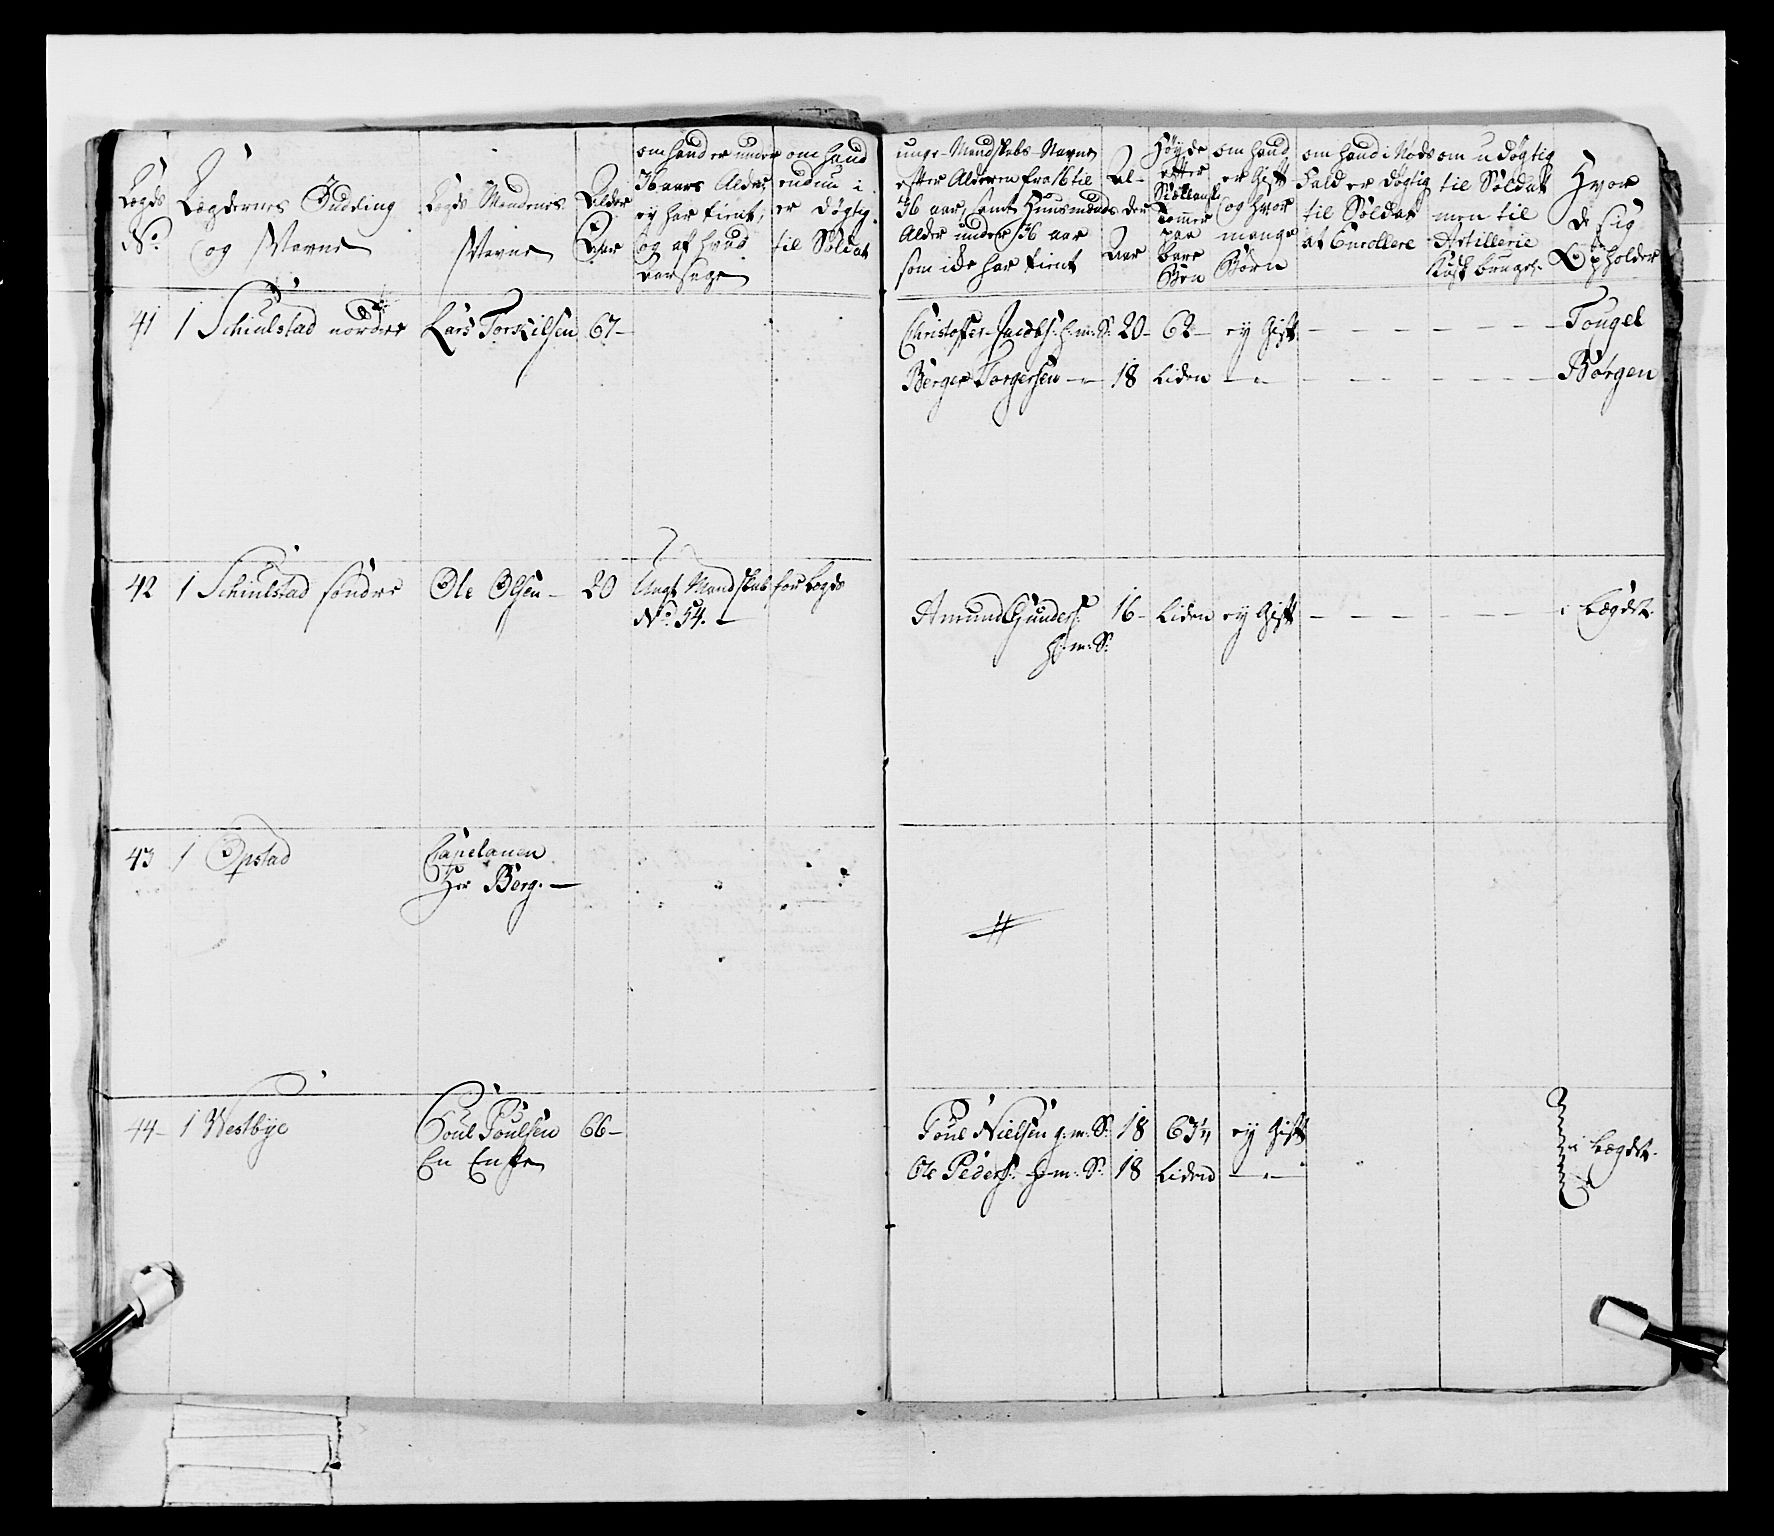 Lægds
No.
Lægdernes Inddeling
og Navne
Lægds Mændenes
Navne
Alder
Aar
om hand er under
36 aars Alder,
ey har tient,
og af hvad
Aarsage
om hand
endnu i
er døgtig
til Soldat
unge Mandskabs Navne
efter Alderen fra 16 til
36 aar, samt Huusmænds
Alder under 36 aar
som icke har tient
Al-
der
Aar
Høyde
efter
Siællandsk
tommer
paa
bare
Been
om hand
er Gift
og hvor
mange
Børn
om hand i Nøds
Fald er døgtig
til Soldat
at Enrollere
om udøgtig
til Soldat
men til
Artillerie
Kusk bruges
Hvor
de sig
Opholder
41 1 Schiulstad nordre Lars Torkilsen 67 - Christoffer Jacobs: h: m: S: 20 - 62 - ey Gift - - - - - - Tougel
Berger Torgersen - " - 18 Liden - " - - - - - - - Børgen
42 1 Schiulstad søndre Ole Olsen - 20 Ungt Mandskab for Lægds
No. 54. -
Amund Gunders: 16 - Liden ey Gift - - - - - - i Lægdet.
h: m: S:
43 1 Opstad Capelanen
Her Berg. -
44 - 1 Westbye Poul Poulsen 66 - Poul Nielsen g: m: S: 18 63 1/2 ey Gift
En Encke
Ole Peders: h: m: S: 18 Liden - " -
i Lægdet.